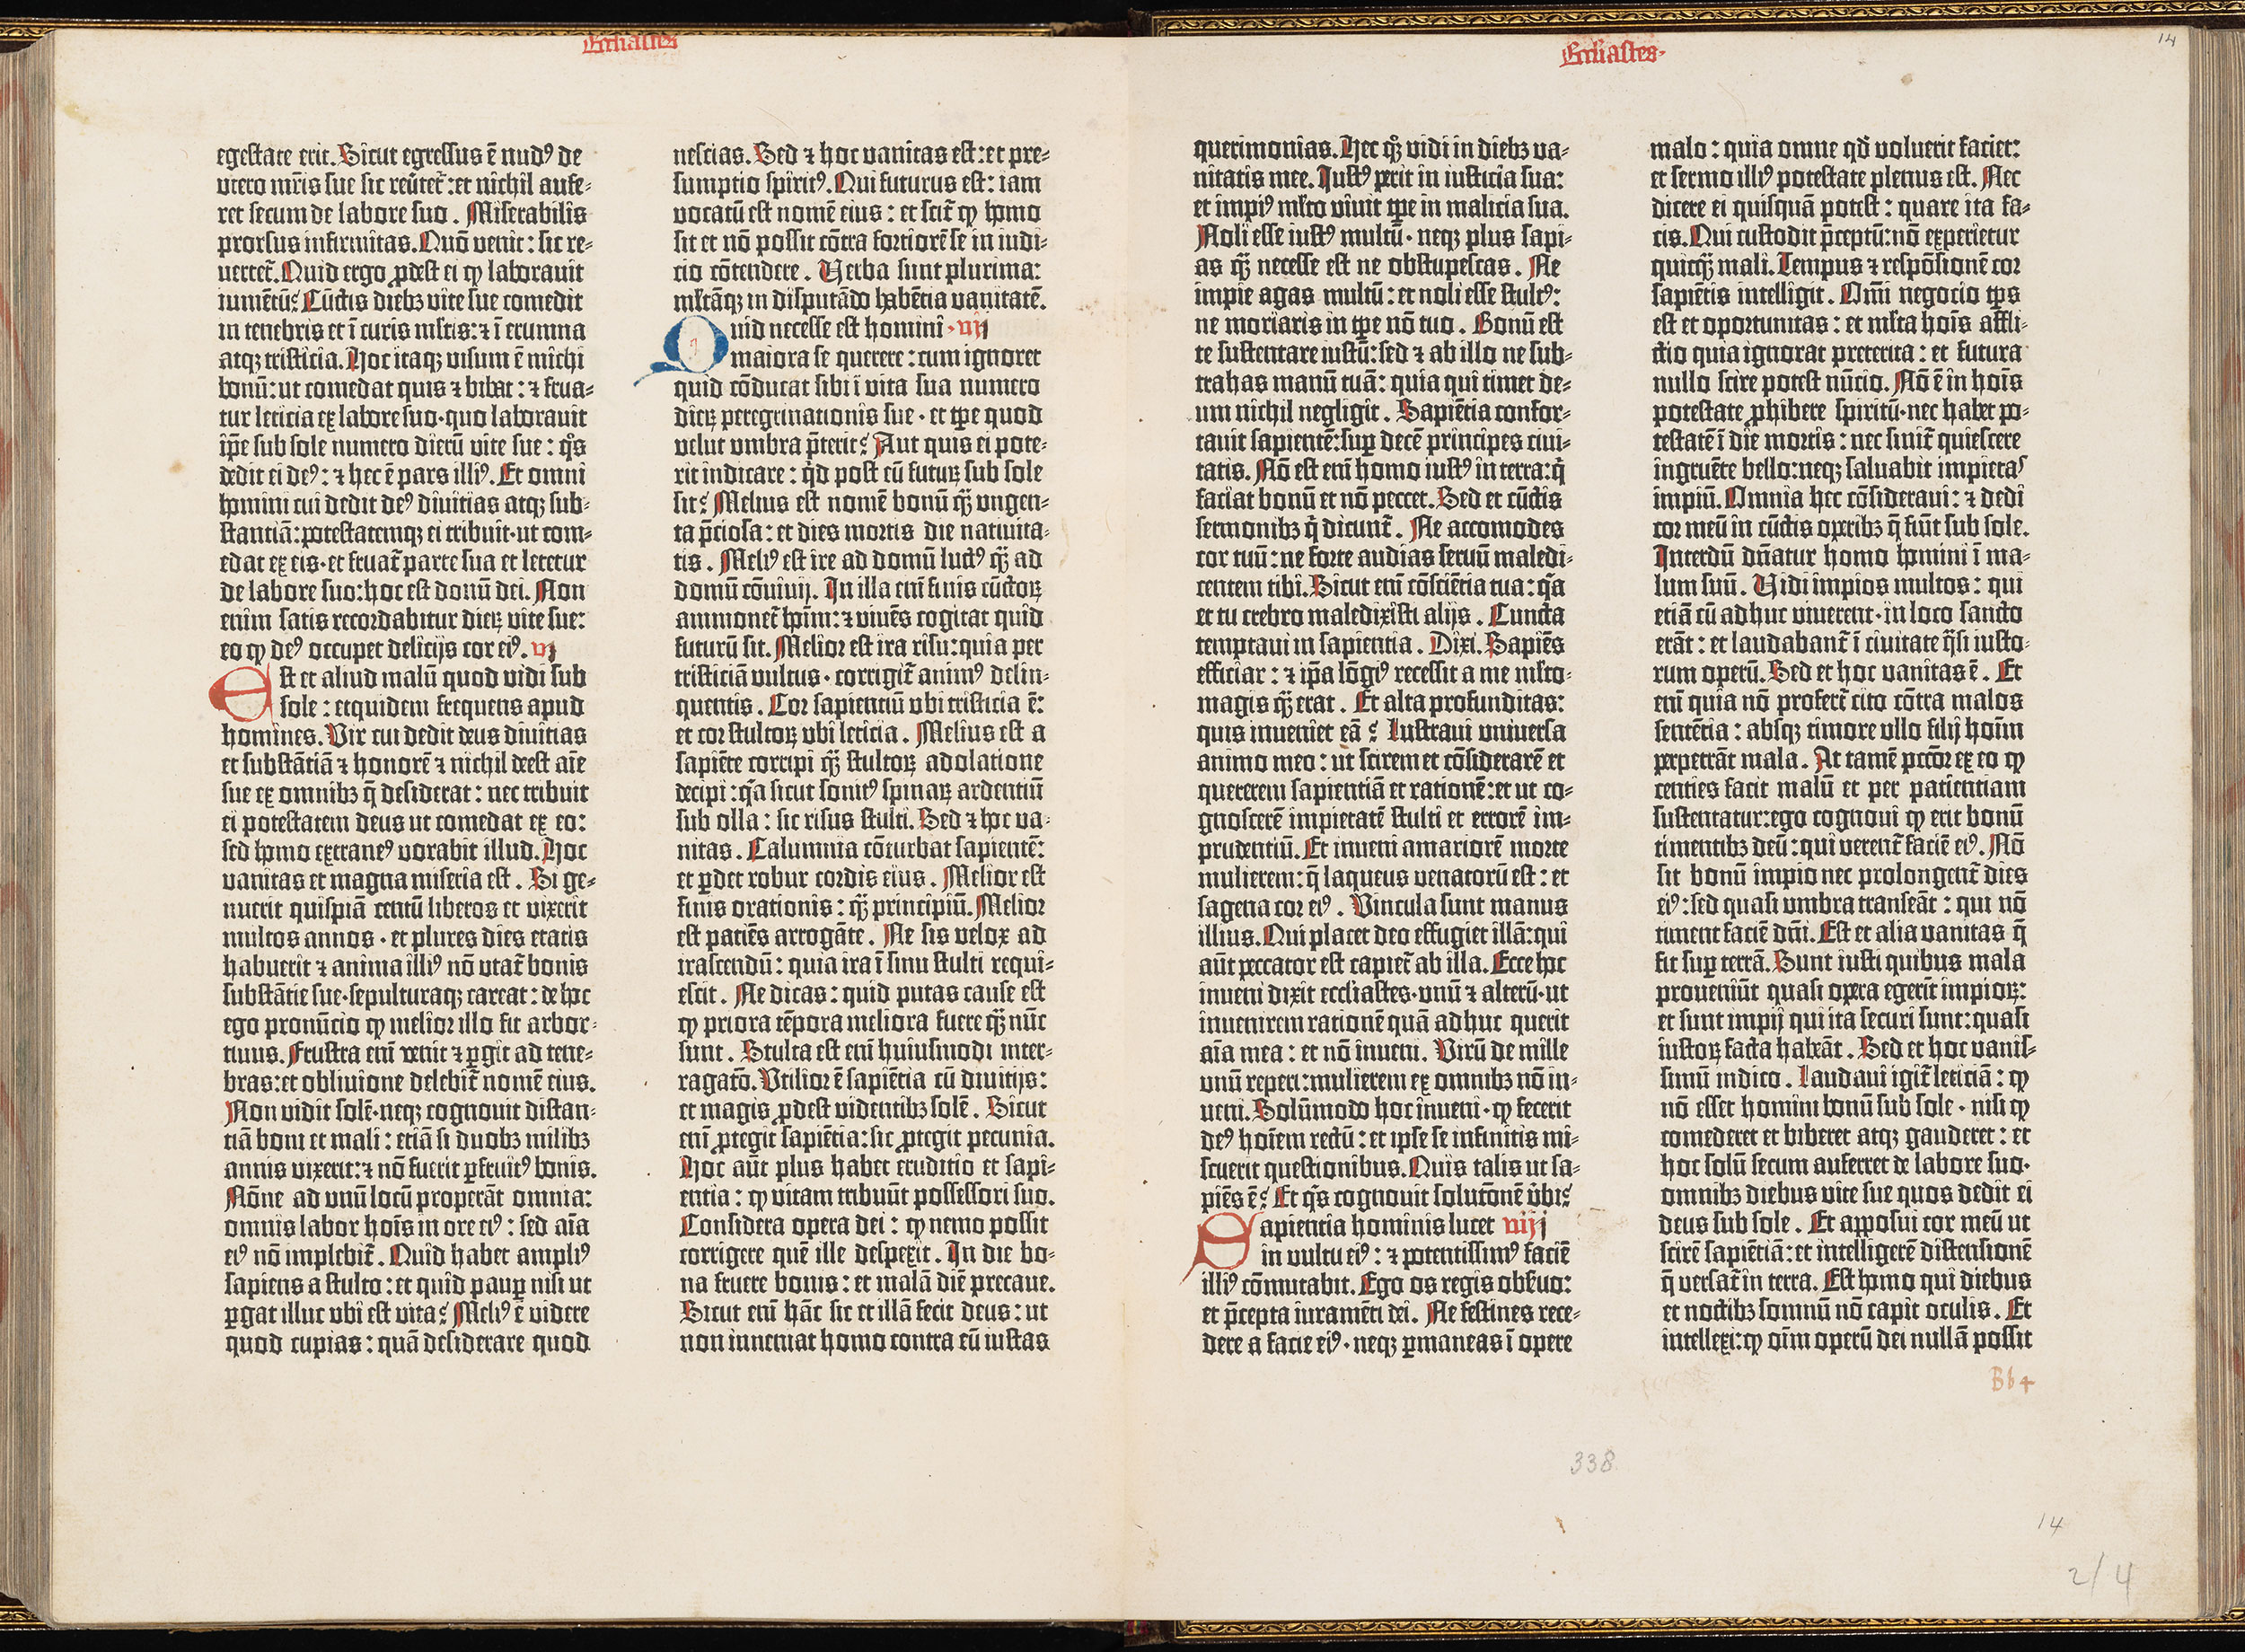 Eccl̄iastes
egestate erit. Sicut egressus ē nudꝰ de
utero mr̄is sue sic reūtet᷑: et nichil aufe-
ret secum de labore suo. Miserabilis
prorsus infirmitas. Quō venit: sic re-
uertet᷑. Quid ergo ꝓdest ei ꝙ laborauit
in uētū? Cūctis diebꝫ vite sue comedit
in tenebris et ī curis ml̄tis: ⁊ ī erumna
atqꝫ tristicia. Hoc itaqꝫ visum ē michi
bonū: ut comedat quis ⁊ bibat: ⁊ frua-
tur leticia ex labore suo· quo laborauit
ip̄e sub sole numero dierū vite sue: qͥs
dedit ei deꝰ: ⁊ hec ē pars illiꝰ. Et omni
homini cui dedit deꝰ diuitias atqꝫ sub-
stantiā: potestatemqꝫ ei tribuit· ut com-
edat ex eis· et fruat᷑ parte sua et letetur
de labore suo: hoc est donū dei. Non
enim satis recordabitur dieꝝ vite sue:
eo ꝙ deꝰ occupet delicijs cor eiꝰ. vj
Est et aliud malū quod vidi sub
sole: et quidem frequens apud
homines. Vir cui dedit deus diuitias
et substātiā ⁊ honorē ⁊ nichil deest aīe
sue ex omnibꝫ q̄ desiderat: nec tribuit
ei potestatem deus ut comedat ex eo:
sed homo extraneꝰ vorabit illud. Hoc
vanitas et magna miseria est. Si ge-
nuerit quispiā centū liberos et vixerit
multos annos· et plures dies etatis
habuerit ⁊ anima illiꝰ nō utat᷑ bonis
substātie sue· sepulturaqꝫ careat: de hoc
ego pronūcio ꝙ melior illo sit abor-
tiuus. Frustra enī venit ⁊ ꝑgit ad tene-
bras: et obliuione delebit᷑ nomē eius.
Non vidit solē· neqꝫ cognouit distan-
tiā boni et mali: etiā si duobꝫ milibꝫ
annis vixerit: ⁊ nō fuerit ꝑfruitꝰ bonis.
Nōne ad unū locū properāt omnia:
omnis labor hoīs in ore eiꝰ: sed aīa
eiꝰ nō implebit᷑. Quid habet ampliꝰ
sapiens a stulto: et quid pauꝑ nisi ut
ꝑgat illuc ubi est vita? Meliꝰ ē videre
quod cupias: quā desiderare quod
nescias. Sed ⁊ hoc vanitas est: et pre-
sumptio spiritꝰ. Qui futurus est: iam
vocatū est nomē eius: et scit᷑ ꝙ homo
sit et nō possit cōtra fortiorē se in iudi-
cio cōtendere. Verba sunt plurima:
ml̄tāqꝫ in disputādo habētia vanitatē.
Quid necesse est homini· vij
maiora se querere: cum ignoret
quid cōducat sibi ī vita sua numero
dieꝝ peregrinationis sue· et tp̄e quod
velut umbra p̄terit? Aut quis ei pote-
rit indicare: qͥd post eū futuꝝ sub sole
sit? Melius est nomē bonū qͣ̄ ungen-
ta p̄ciosa: et dies mortis die natiuita-
tis. Meliꝰ est ire ad domū luctꝰ qͣ̄ ad
domū cōuiuij. In illa enī finis cūctoꝝ
ammonet᷑ hoīm: ⁊ viuēs cogitat quid
futurū sit. Melior est ira risu: quia per
tristiciā vultus· corrigit᷑ animꝰ delin-
quentis. Cor sapientiū ubi tristicia ē:
et cor stultoꝝ ubi leticia. Melius est a
sapiēte corripi qͣ̄ stultoꝝ adolatione
decipi: qͥa sicut sonitꝰ spinaꝝ ardentiū
sub olla: sic risus stulti. Sed ⁊ hoc va-
nitas. Calumnia cōturbat sapientē:
et ꝑdet robur cordis eius. Melior est
finis orationis: qͣ̄ principiū. Melior
est patiēs arrogāte. Ne sis velox ad
irascendū: quia ira ī sinu stulti requi-
escit. Ne dicas: quid putas cause est
ꝙ priora tēpora meliora fuere qͣ̄ nūc
sunt. Stulta est enī huiusmodi inter-
ragatō. Utilior ē sapiētia cū diuitijs:
et magis ꝓdest videntibꝫ solē. Sicut
enī ꝓtegit sapiētia: sic ꝓtegit pecunia.
Hoc aūt plus habet eruditio et sapi-
entia: ꝙ vitam tribuūt possessori suo.
Considera opera dei: ꝙ nemo possit
corrigere quē ille despexit. In die bo-
na fruere bonis: et malā diē precaue.
Sicut enī hāc sic et illā fecit deus: ut
non inueniat homo contra eū iustas
Eccl̄iastes·
14
querimonias. Hec qͦꝫ vidi in diebꝫ va-
nitatis mee. Iustꝰ perit in iusticia sua:
et impiꝰ ml̄to viuit tp̄e in malicia sua.
Noli esse iustꝰ multū· neqꝫ plus sapi-
as qͣ̄ necesse est ne obstupescas. Ne
impie agas multū: et noli esse stultꝰ:
ne moriaris in tp̄e nō tuo. Bonū est
te sustentare iustū: sed ⁊ ab illo ne sub-
trahas manū tuā: quia qui timet de-
um nichil negligit. Sapiētia confor-
tauit sapientē: suꝑ decē principes ciui-
tatis. Nō est enī homo iustꝰ in terra: qͥ
faciat bonū et nō peccet. Sed et cūctis
sermonibꝫ q̄ dicunt᷑. Ne accomodes
cor tuū: ne forte audias seruū maledi-
centem tibi. Sicut enī cōsciētia tua: qͥa
et tu crebro maledixisti alijs. Cuncta
temptaui in sapientia. Dixi. Sapiēs
efficiar: ⁊ ip̄a lōgiꝰ recessit a me ml̄to
magis qͣ̄ erat. Et alta profunditas:
quis inueniet eā? Lustraui uniuersa
animo meo: ut scirem et cōsiderarē et
quererem sapientiā et rationē: et ut co-
gnoscerē impietatē stulti et errorē im-
prudentiū. Et inueni amariorē morte
mulierem: q̄ laqueus venatorū est: et
sagena cor eiꝰ. Vincula sunt manus
illius. Qui placet deo effugiet illā: qui
aūt peccator est capiet᷑ ab illa. Ecce hoc
inueni dixit eccl̄iastes· unū ⁊ alterū· ut
inuenirem rationē quā adhuc querit
aīa mea: et nō inueni. Virū de mille
unū reperi: mulierem ex omnibꝫ nō in-
ueni. Solūmodo hoc inueni· ꝙ fecerit
deꝰ hoīem rectū: et ipse se infinitis mi-
scuerit questionibus. Quis talis ut sa-
piēs ē? Et qͥs cognouit solutōnē v̄bi?
Sapientia hominis lucet viij
in vultu eiꝰ: ⁊ potentissimꝰ faciē
illiꝰ cōmutabit. Ego os regis obẜuo:
et p̄cepta iuramēti dei. Ne festines rece-
dere a facie eiꝰ· neqꝫ ꝑmaneas ī opere
malo: quia omne qd̄ voluerit faciet:
et sermo illiꝰ potestate plenus est. Nec
dicere ei quisquā potest: quare ita fa-
cis. Qui custodit p̄ceptū: nō experietur
quicqͣ̄ mali. Tempus ⁊ respōsionē cor
sapiētis intelligit. Om̄i negocio tp̄s
est et oportunitas: et ml̄ta hoīs affli-
ctio quia ignorat preterita: et futura
nullo scire potest nūcio. Nō ē in hoīs
potestate ꝓhibere spiritū· nec habet po-
testatē ī die mortis: nec sinit᷑ quiescere
ingruēte bello: neqꝫ saluabit impietas
impiū. Omnia hec cōsideraui: ⁊ dedi
cor meū in cūctis operibꝫ q̄ fiūt sub sole.
Interdū dn̄atur homo homini ī ma-
lum suū. Vidi impios multos: qui
etiā cū adhuc viuerent· in loco sancto
erāt: et laudabant᷑ ī ciuitate qͣsi iusto-
rum operū. Sed et hoc vanitas ē. Et
enī quia nō profert᷑ cito cōtra malos
sentētia: absqꝫ timore ullo filij hoīm
perpetrāt mala. At tamē pcc̄or ex eo ꝙ
centies facit malū et per patientiam
sustentatur: ego cognoui ꝙ erit bonū
timentibꝫ deū: qui verent᷑ faciē eiꝰ. Nō
sit bonū impio nec prolongent᷑ dies
eiꝰ: sed quasi umbra transeāt: qui nō
timent faciē dn̄i. Est et alia vanitas q̄
fit suꝑ terrā. Sunt iusti quibus mala
proueniūt quasi opera egerit impioꝝ:
et sunt impij qui ita securi sunt: quasi
iustoꝝ facta habeāt. Sed et hoc vanis-
simū iudico. Laudaui igit᷑ leticiā: ꝙ
nō esset homini bonū sub sole· nisi ꝙ
comederet et biberet atqꝫ gauderet: et
hoc solū secum auferret de labore suo·
omnibꝫ diebus vite sue quos dedit ei
deus sub sole. Et apposui cor meū ut
scirē sapiētiā: et intelligerē distensionē
q̄ versat᷑ in terra. Est homo qui diebus
et noctibꝫ somnū nō capit oculis. Et
intellexi: ꝙ oīm operū dei nullā possit
Bb4
338
14
2/4